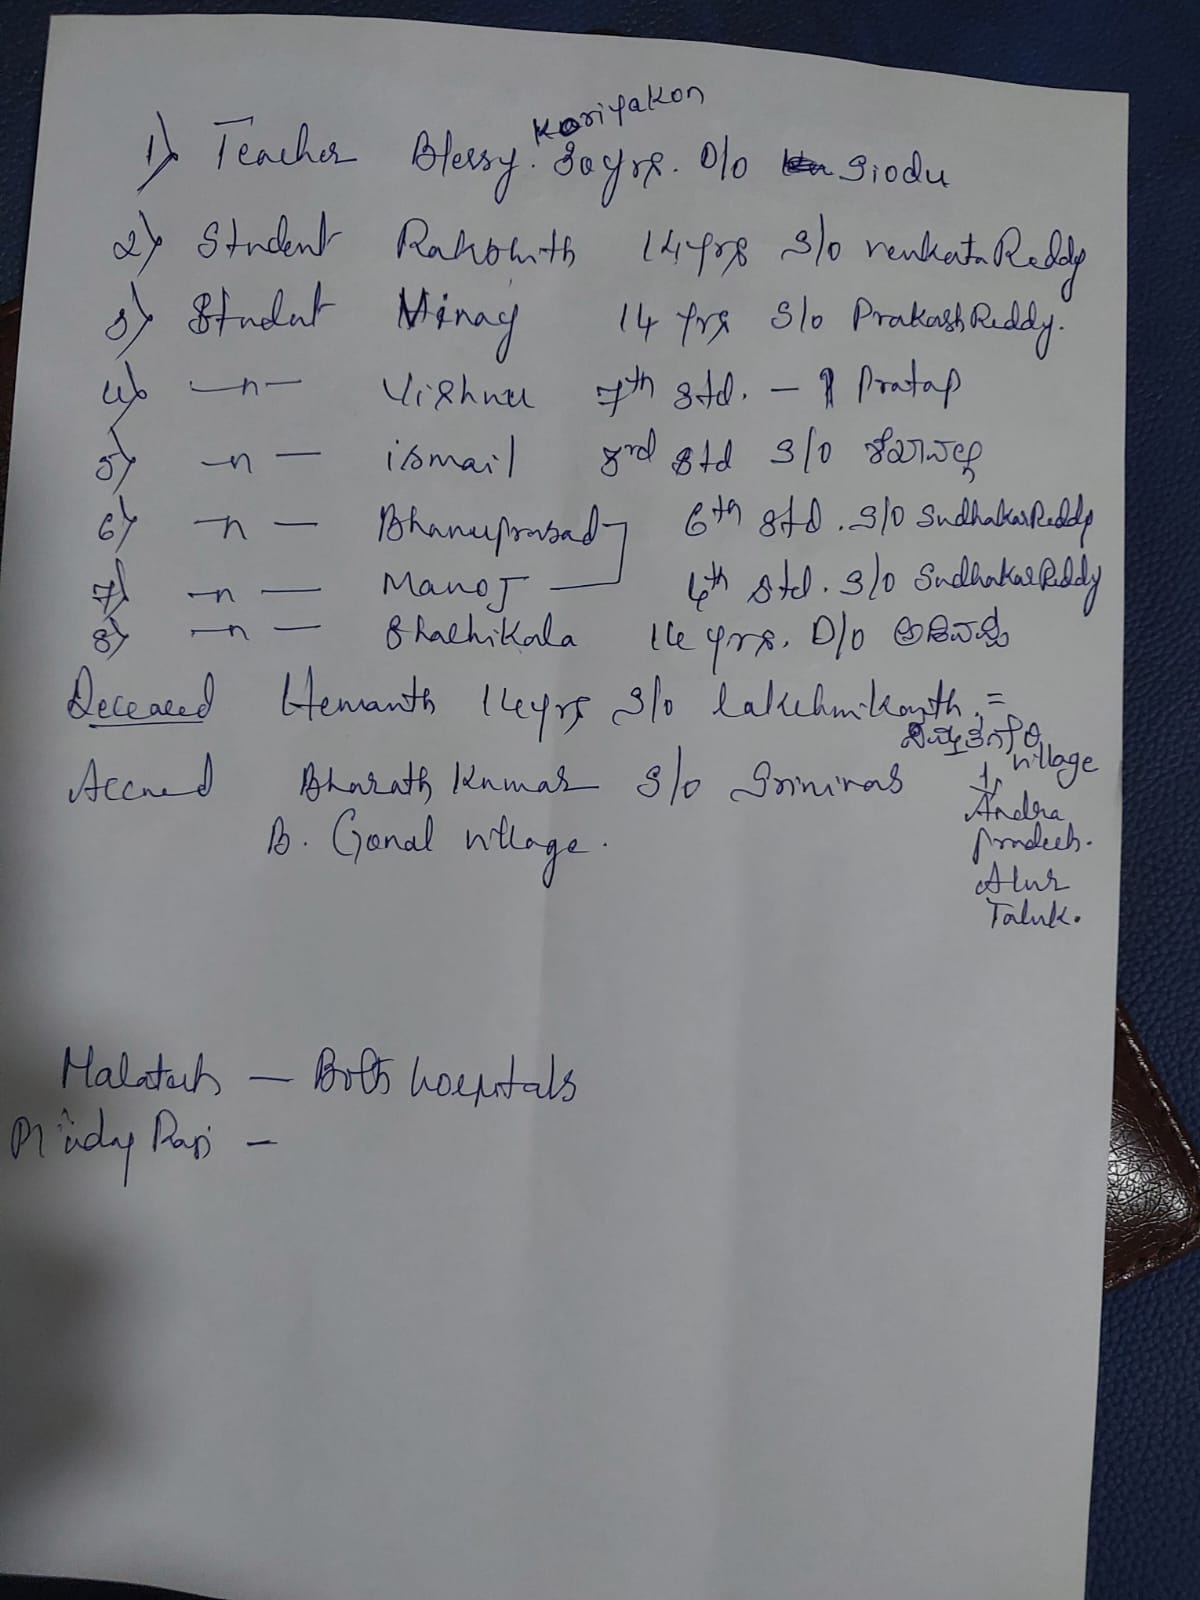 1) Teacher Blessy. Koriyakon 30 yrs. D/o Siodu
2) Student Rakshith 14 yrs S/o venkata Reddy
3) Student Vinay 14 yrs S/o Prakash Reddy.
4) —n— Vishnu 7th std. — Pratap
5) —n— ismail 3rd std S/o
6) —n— Bhanuprasad 6th std. S/o Sudhakar Reddy
7) —n— Manoj 4th std. S/o Sudhakar Reddy
8) —n— Shashikala 14 yrs. D/o
Deceased Hemanth 14 yrs S/o lakshmikanth. =
village
Accused Bharath Kumar S/o Srinivas
Andra
Pradesh.
B. Gonal village.
Alur
Taluk.
Malatesh — Both hospitals